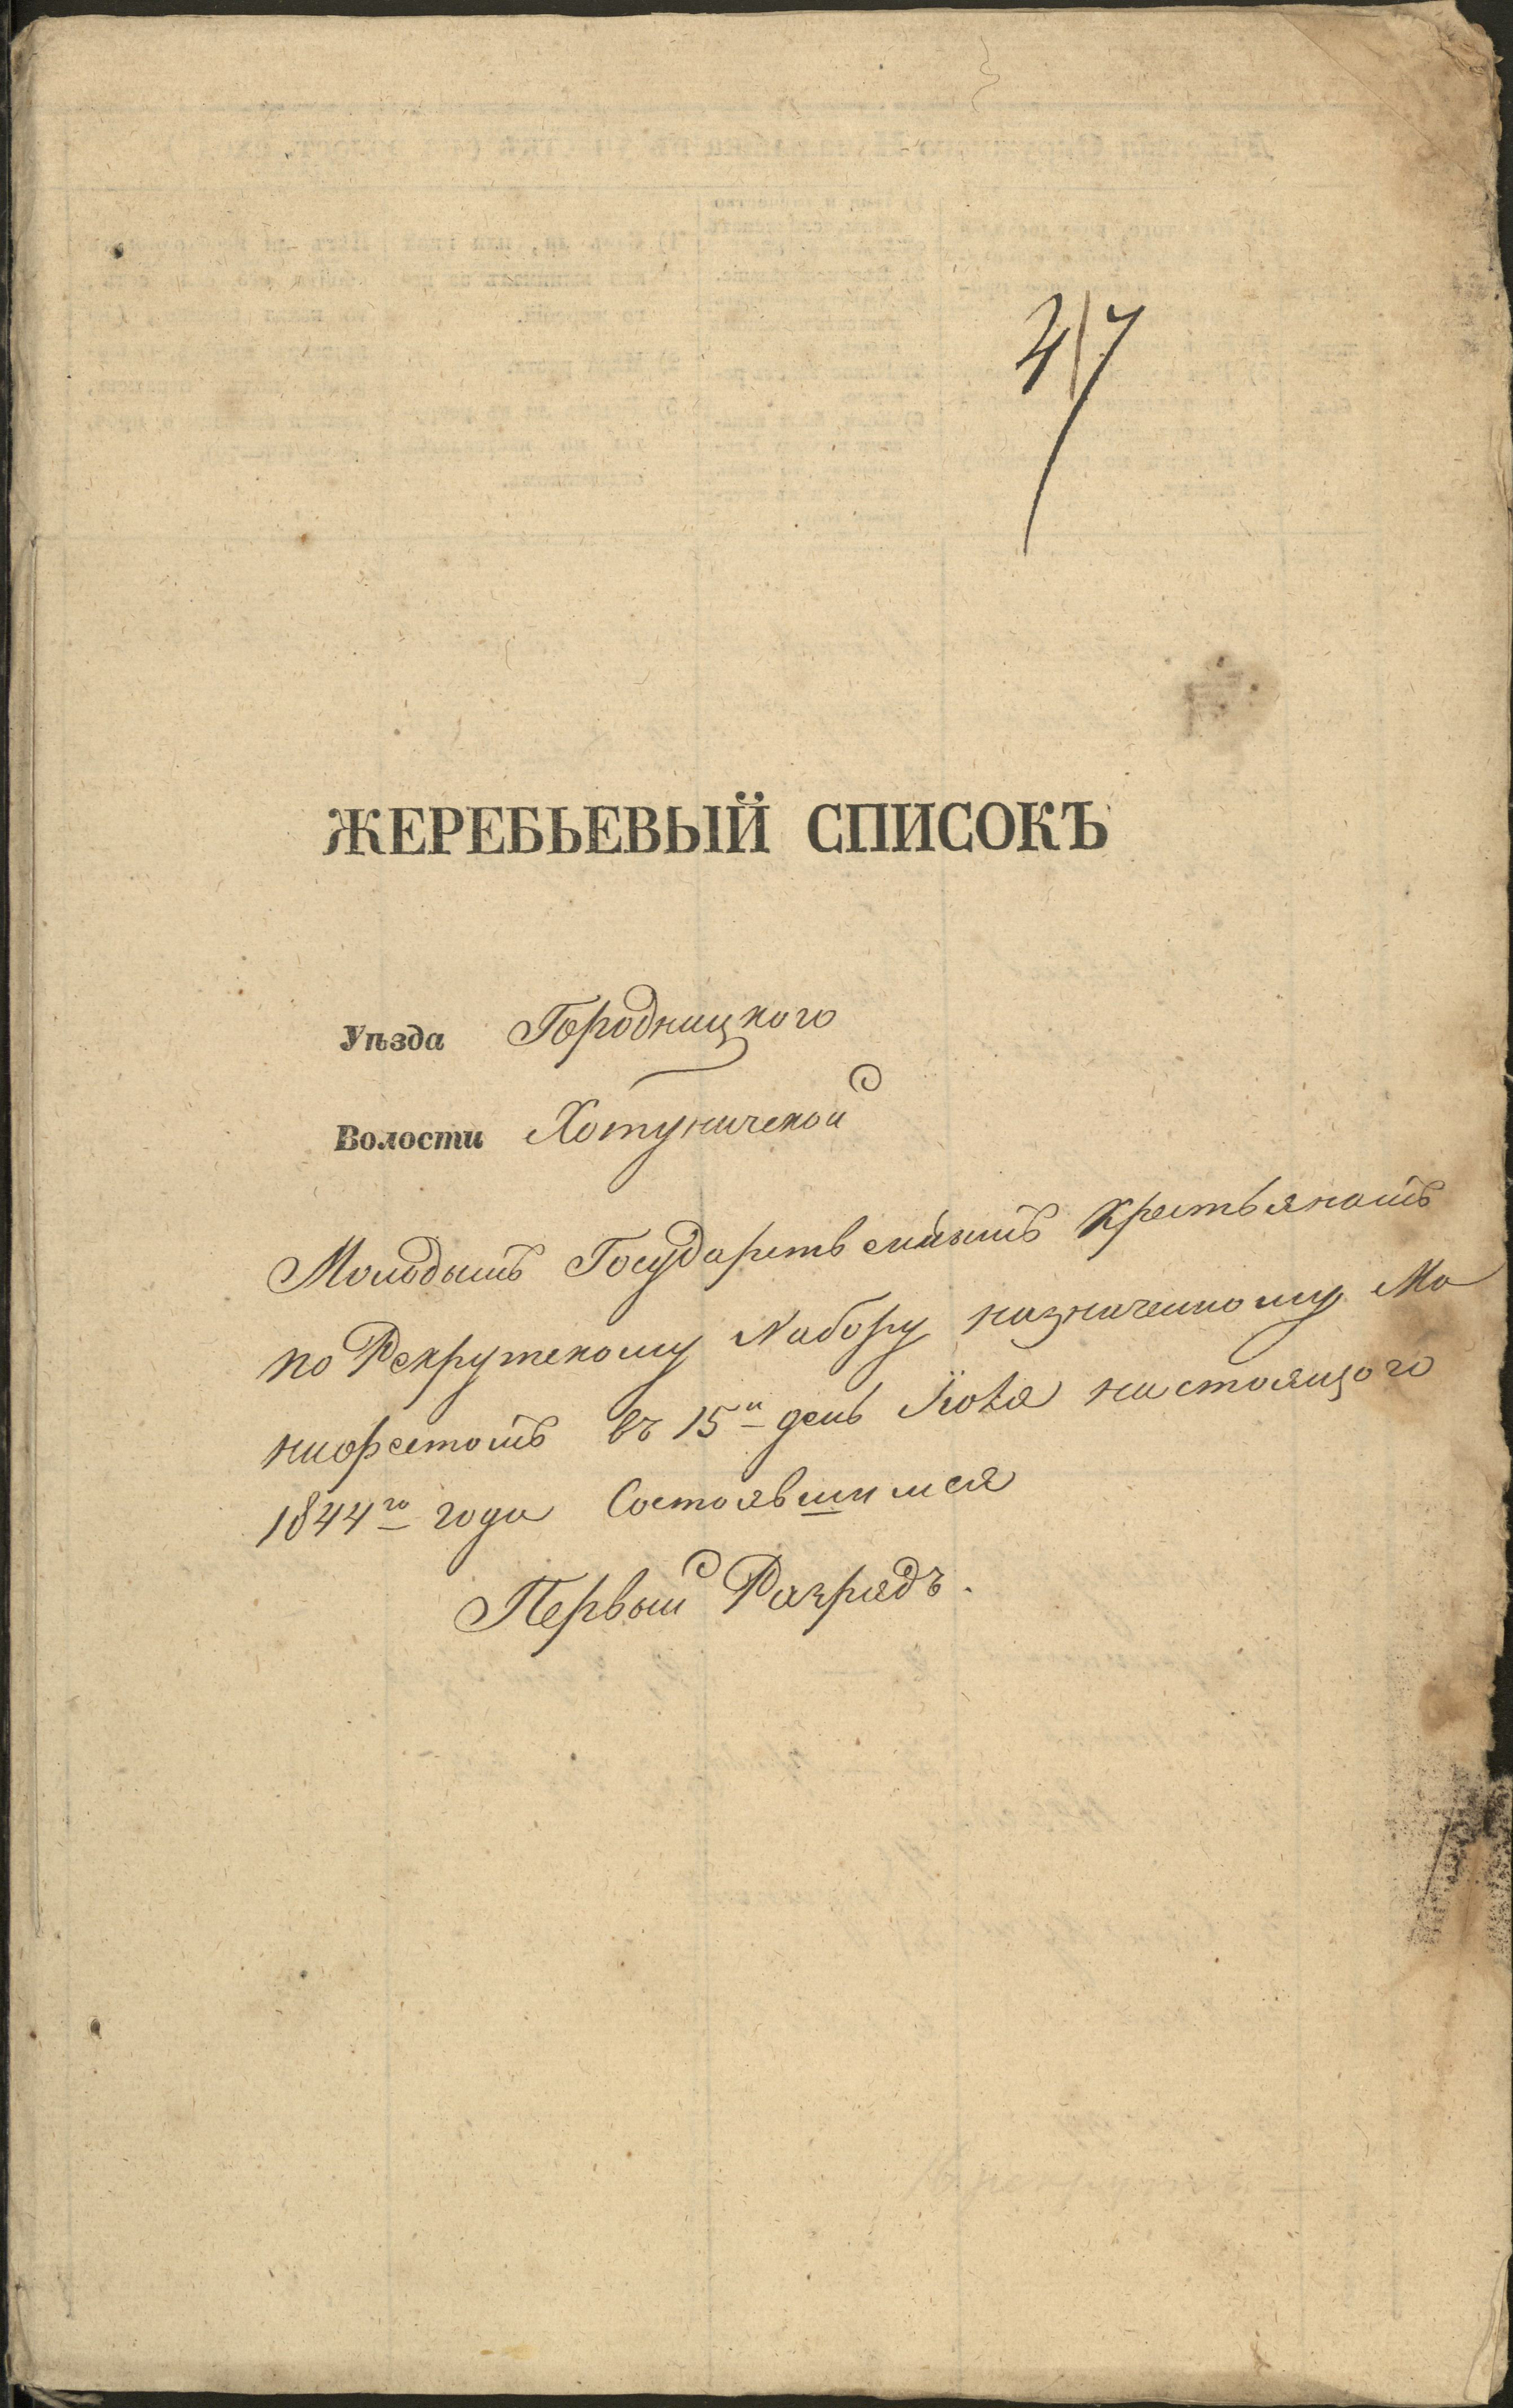 47
ЖЕРЕБЬЕВЫЙ СПИСОКЪ
Уѣзда Городницкого
Волости Хотуничской
Молодымъ Государственнымъ Крестьянамъ
по Рекрутскому Набору назначенному Ма
нифестомъ въ 15й день Іюля настоящого
1844го года Состоявшимся
Первый Разрядъ.